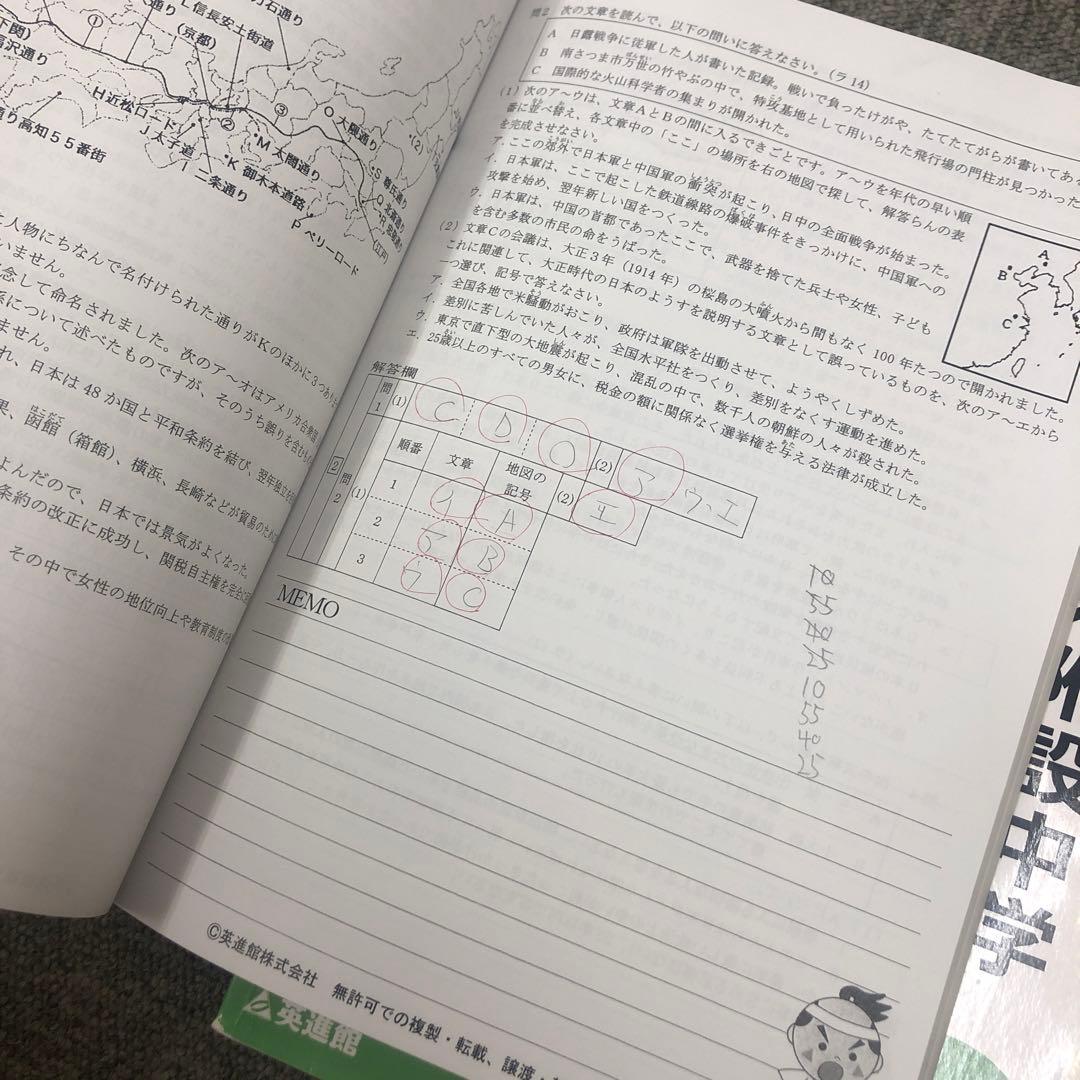 明石通り
L信長安土街道
通り
(京都)
①
下関)
沢通り
H近松ロード
J太子道
②
③
O大隈通り
M太閤通り
K御木本道路
I二条通り
(2)
S尊氏通り
Q北斎通り
(江戸)
Pペリーロード
通り高知55番街
人物にちなんで名付けられた通りがKのほかに3つあり
いません。
念して命名されました。次のア~オはアメリカ合衆国
係について述べたものですが、そのうち誤りを含むもの
ません。
れ、日本は48か国と平和条約を結び、翌年独立を
果、函館(箱館)、横浜、長崎などが貿易のために
よんだので、日本では景気がよくなった。
条約の改正に成功し、関税自主権を完全に
その中で女性の地位向上や教育制度の
問2 次の文章を読んで、以下の問いに答えなさい。(ラ14)
A 日露戦争に従軍した人が書いた記録。戦いで負ったけがや、たてたてがらが書いてあ
B 南さつま市万世の竹やぶの中で、特攻基地として用いられた飛行場の門柱が見つかった
C 国際的な火山科学者の集まりが開かれた。
(1) 次のア~ウは、文章AとBの間に入るできごとです。ア~ウを年代の早い順
番に並べ替え、各文章中の「ここ」の場所を右の地図で探して、解答らんの表
を完成させなさい。
ア.ここの郊外で日本軍と中国軍の衝突が起こり、日中の全面戦争が始まった。
イ.日本軍は、ここで起こした鉄道線路の爆破事件をきっかけに、中国軍への
攻撃を始め、翌年新しい国をつくった。
ウ.日本軍は、中国の首都であったここで、武器を捨てた兵士や女性、子ども
を含む多数の市民の命をうばった。
A
B
C
(2) 文章Cの会議は、大正3年(1914年)の桜島の大噴火から間もなく100年たつので開かれました。
これに関連して、大正時代の日本のようすを説明する文章として誤っているものを、次のア~エから
一つ選び、記号で答えなさい。
ア.全国各地で米騒動がおこり、政府は軍隊を出動させて、ようやくしずめた。
イ.差別に苦しんでいた人々が、全国水平社をつくり、差別をなくす運動を進めた。
ウ.東京で直下型の大地震が起こり、混乱の中で、数千人の朝鮮の人々が殺された。
エ.25歳以上のすべての男女に、税金の額に関係なく選挙権を与える法律が成立した。
解答欄
問1 (1) C D O (2) ア ウ、エ
2 問2 (1) 順番 文章 地図の記号 (2) エ
1 イ A
2 ア B
3 ウ C
MEMO
10
55
40
25
10
55
40
25
©英進館株式会社 無許可での複製・転載、譲渡・
英進館
附設中学